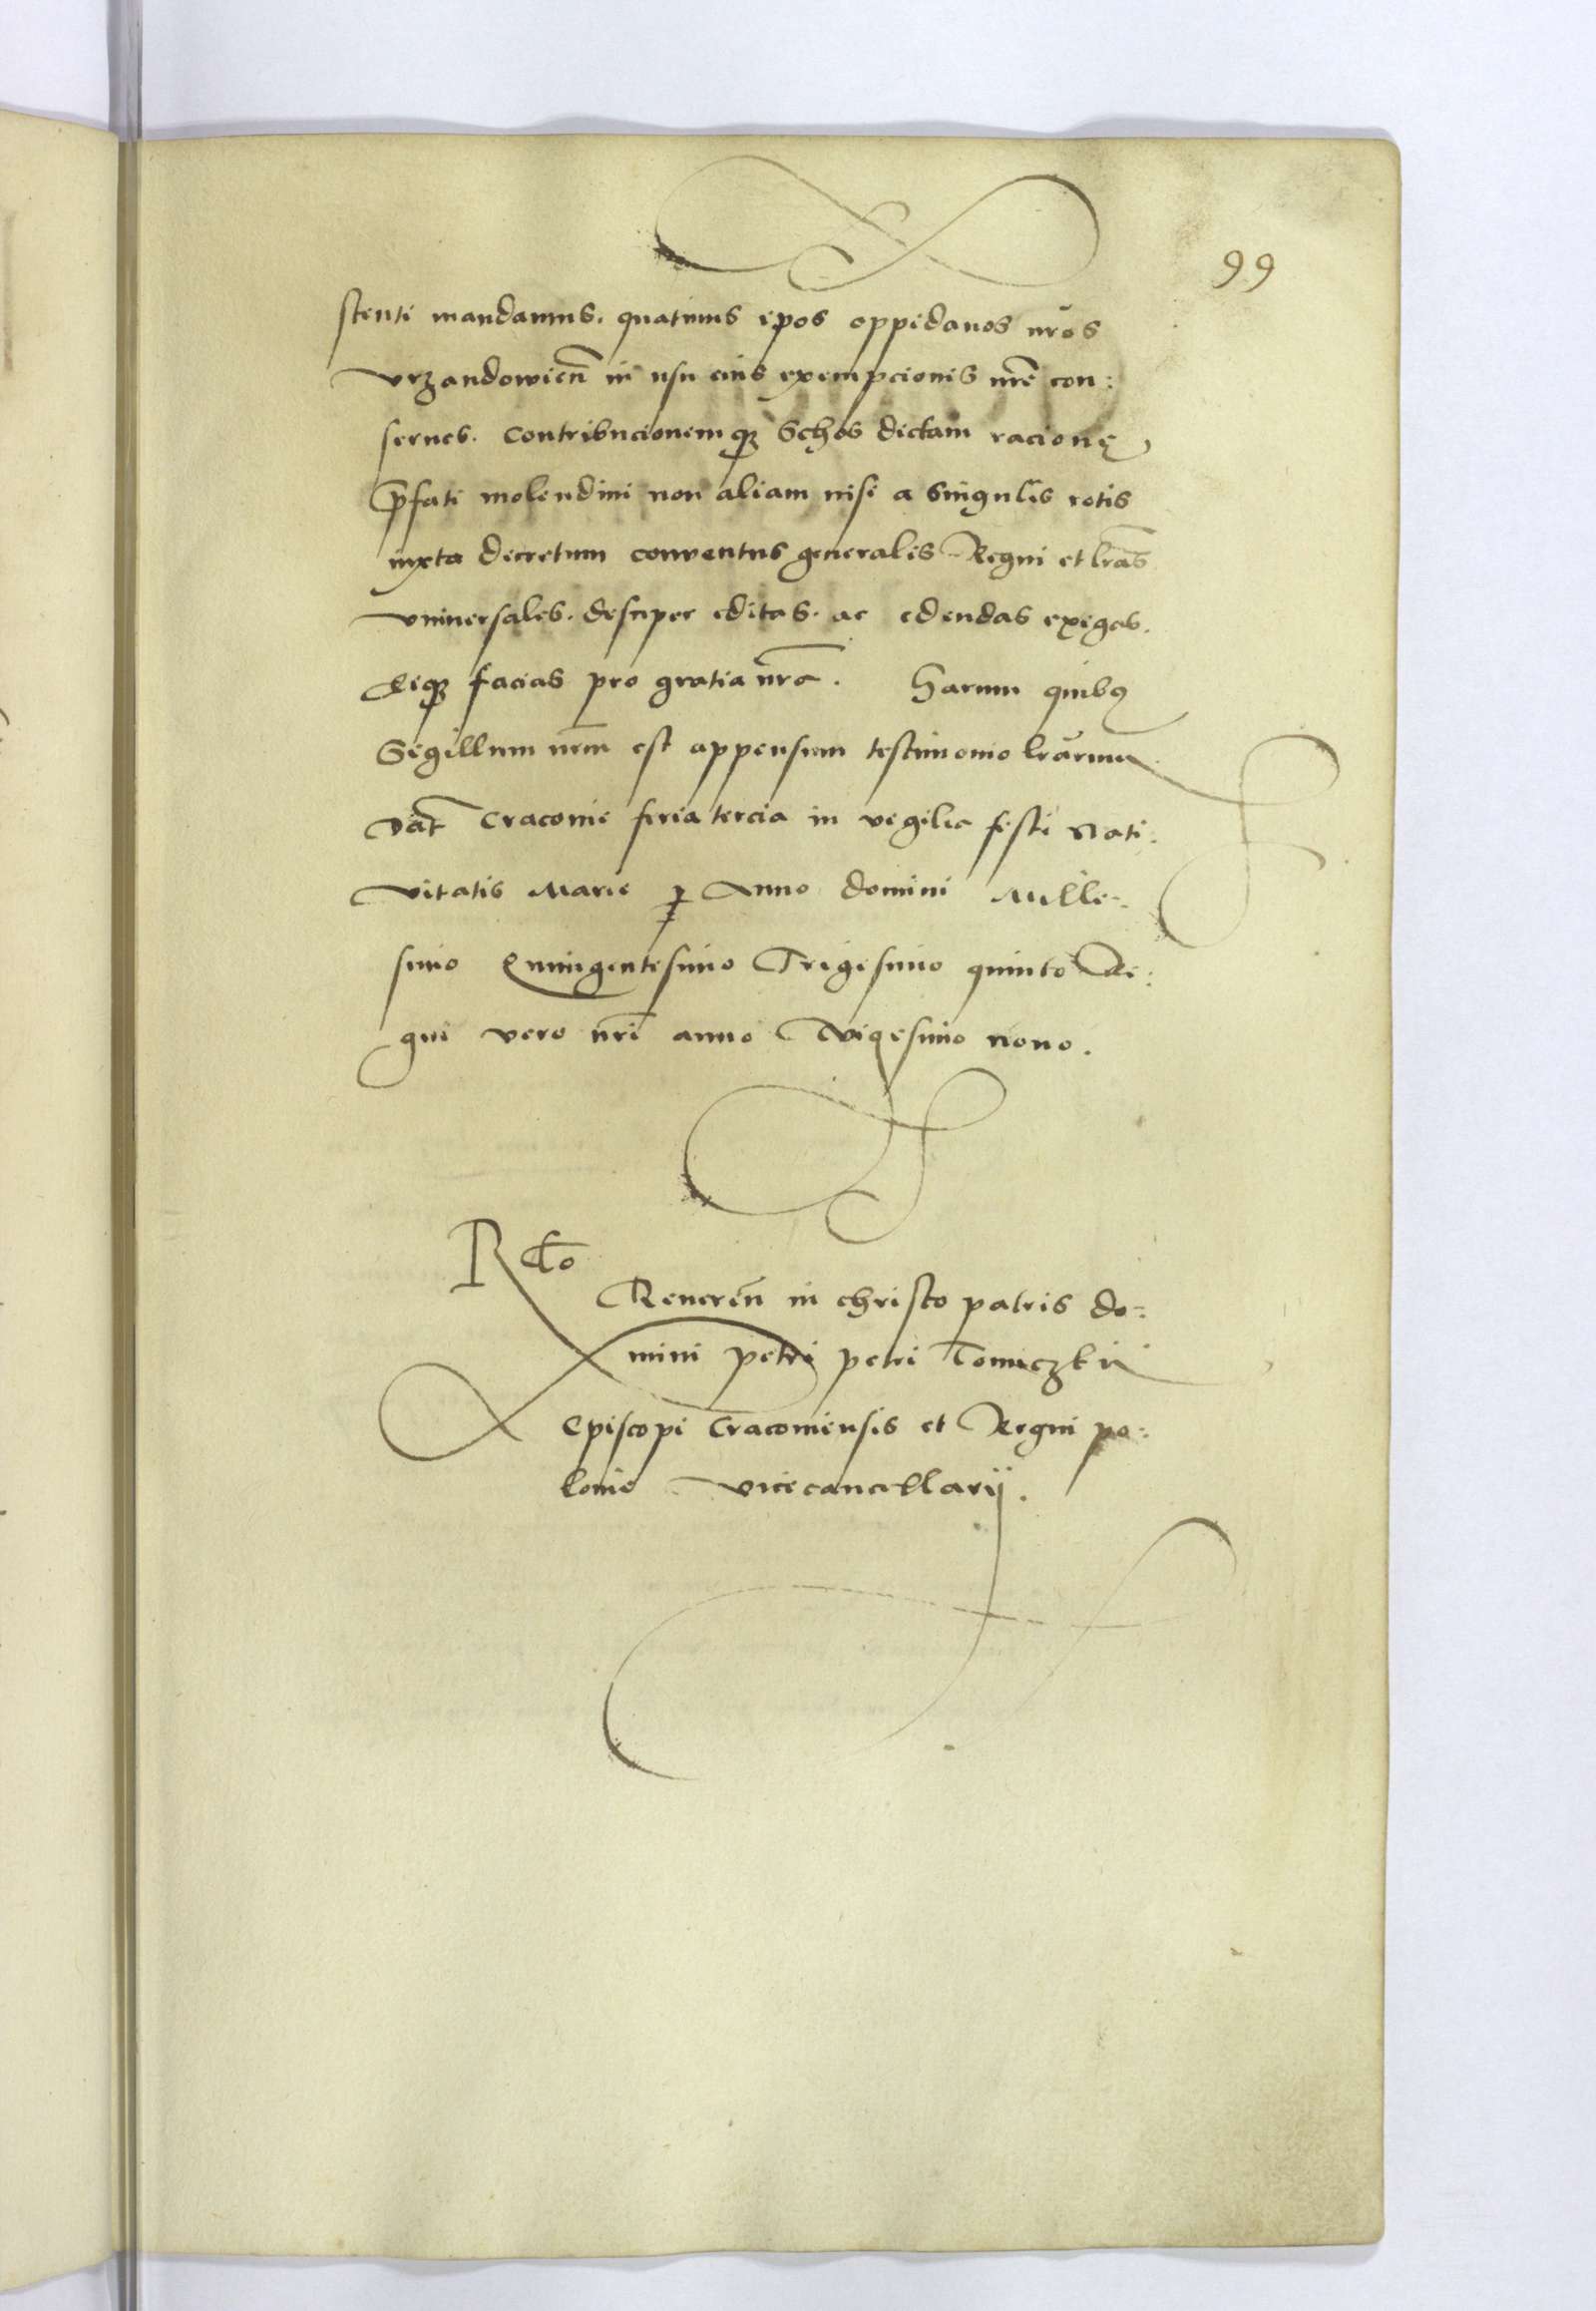 99
stenti mandamus. quatinus ipos oppidanos nr̃os
vrzandowień in usu eius exempcionis nr̃e con:
serues. Contribucionemqꝫ Schos dictam racione
p̃fati molendini non aliam nisi a singulis rotis
iuxta decretum conventus generalis Regni et lr̃as
vniuersales. desuper editas. ac edendas exigas.
facias pro gratia nr̃a. Harum quibꝰ
Sigillum nr̃m est appensum testimonio lr̃arum
Dat̃ Cracouie feria tercia in vigilia festi Nati:
vitatis Marie Anno domini Mille:
simo Quingentesimo Trigesimo quinto Re:
gni vero nr̃i anno Vigesimo nono.
R̃cto
Reueren̄ in christo patris do:
mini petri petri Tomiczkij
Episcopi Cracouiensis et Regni po:
lonie vicecancellarij.